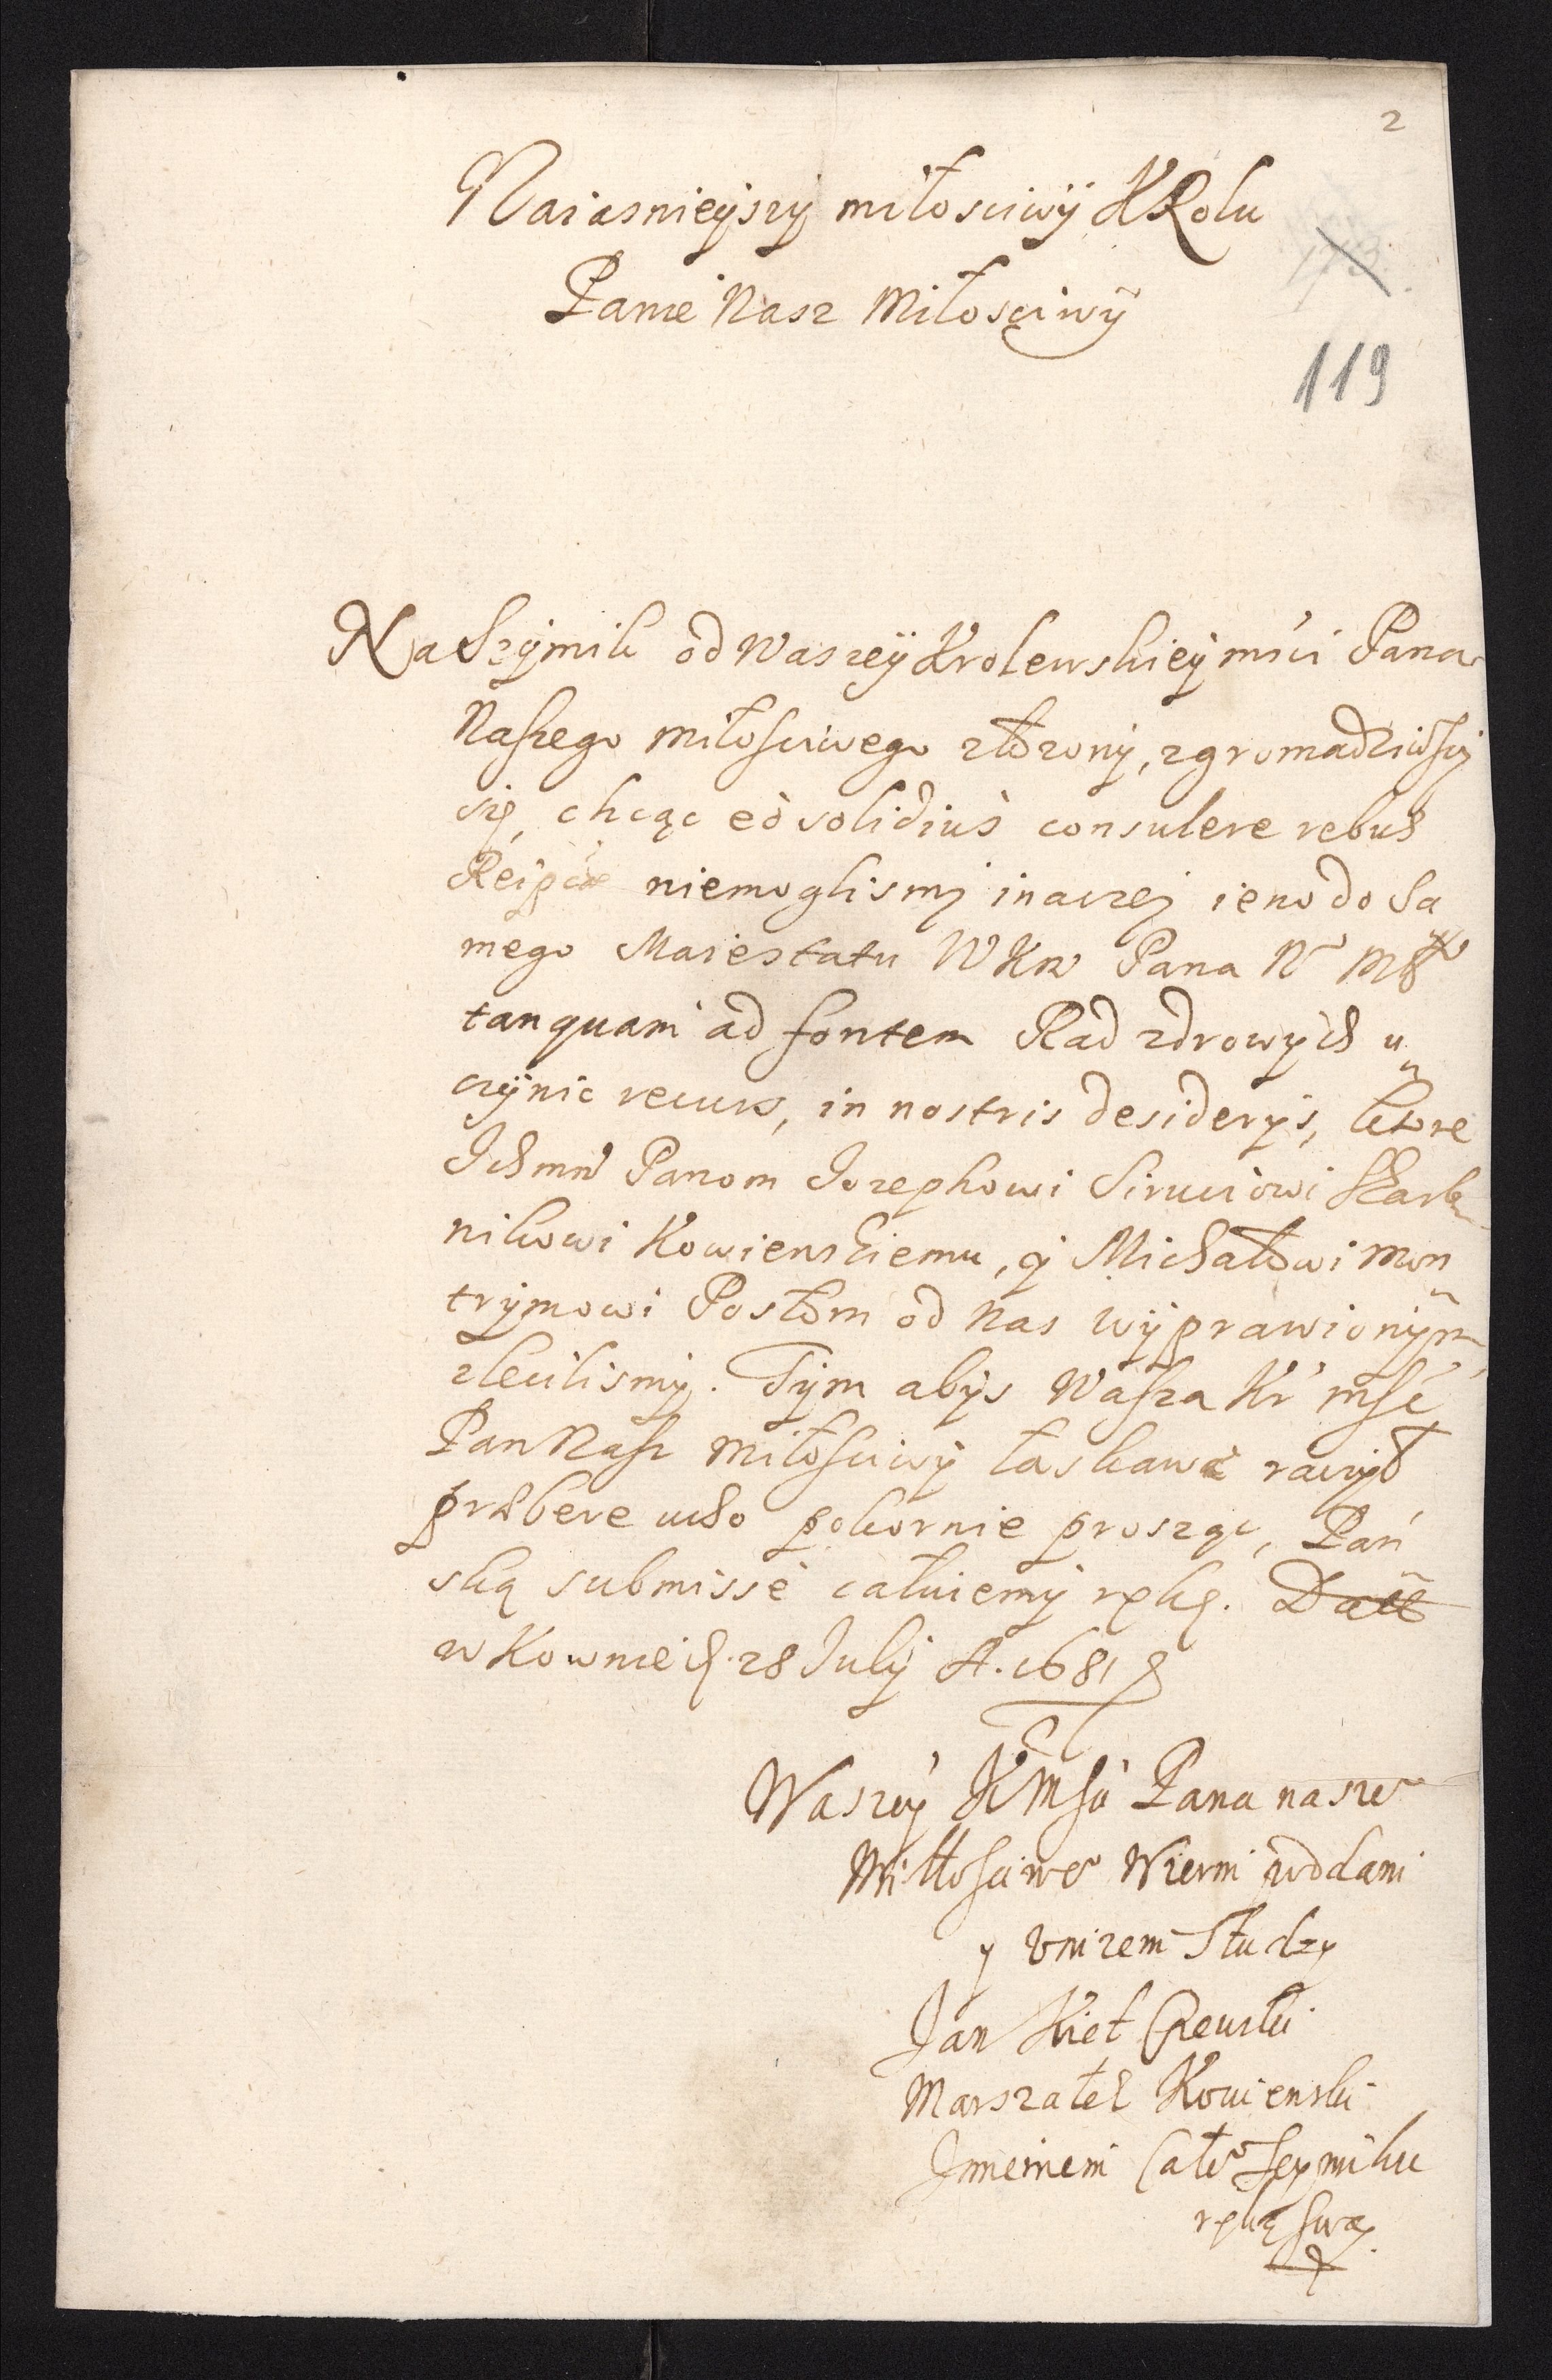 2
Naiasnieyszy miłosciwy KRolu
173.
Panie Nasz Miłosciwy
119
Na Szymik od Waszey Krolewskiey mści Pana
Naszego miłosciwego złozony, zgromadziwszy
się, chcąc eò solidiùs consulere rebus
Reipcæ niemoglismy inaczey ieno do Sa
mego Maiestatu WKM Pana No Mgo
tanquam ad fontem Rad zdrowych u
czynic recurs, in nostris desiderys, ktore
Ichmm Panom Jozephowi Siruciowi Skarb
nikowi Kowienskiemu, y Michałowi Mon
trymowi Posłom od nas wyprawionym,
zlecilismy. Tym abys Wasza Kr mść
Pan Nasz Miłosciwy łaskawe raczył
præbere ucho pokornie prosząc, Pań
ską submissè całuiemy rękę. Datt
w Kownie d. 28 July A. 1681
Waszey K Mści Pana naszeo
Miłłosciweo Wierni poddani
y Vnizeni Słudzy
Jan Kiet
Marszałek Kowienski
Jmieniem Całeo Seymiku
ręką swą